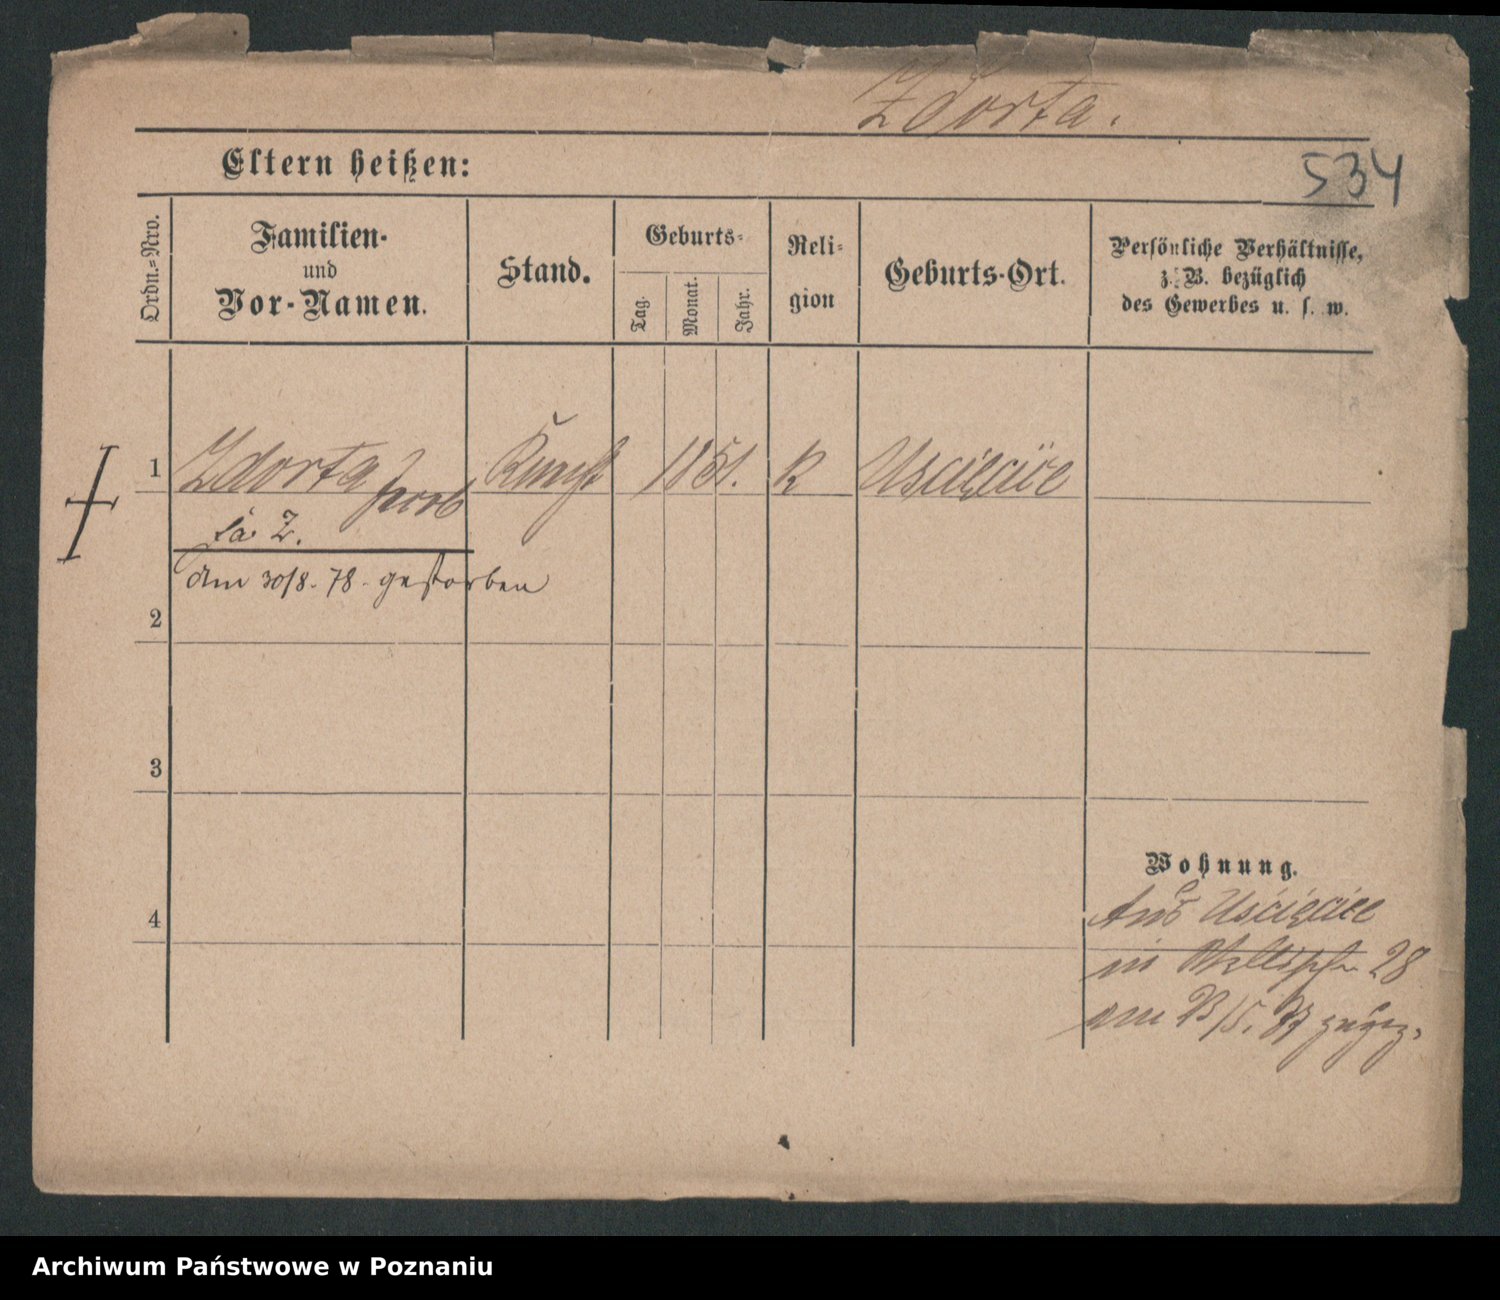 Zdorta.
534
Eltern heißen:
Ordn.-Nro.
Familien-
und
Vor-Namen.
Stand.
Geburts-
Tag.
Monat.
Jahr.
Reli-
gion
Geburts-Ort.
Persönliche Verhältnisse,
z. B. bezüglich
des Gewerbes u. s. w.
1
Zdorta Jacob
1851.
K
Uscięcice
Z.
am 30/8. 78. gestorben
2
3
4
Wohnung.
Aus Uścięcice
in 28
am /5. zugez.
Archiwum Państwowe w Poznaniu